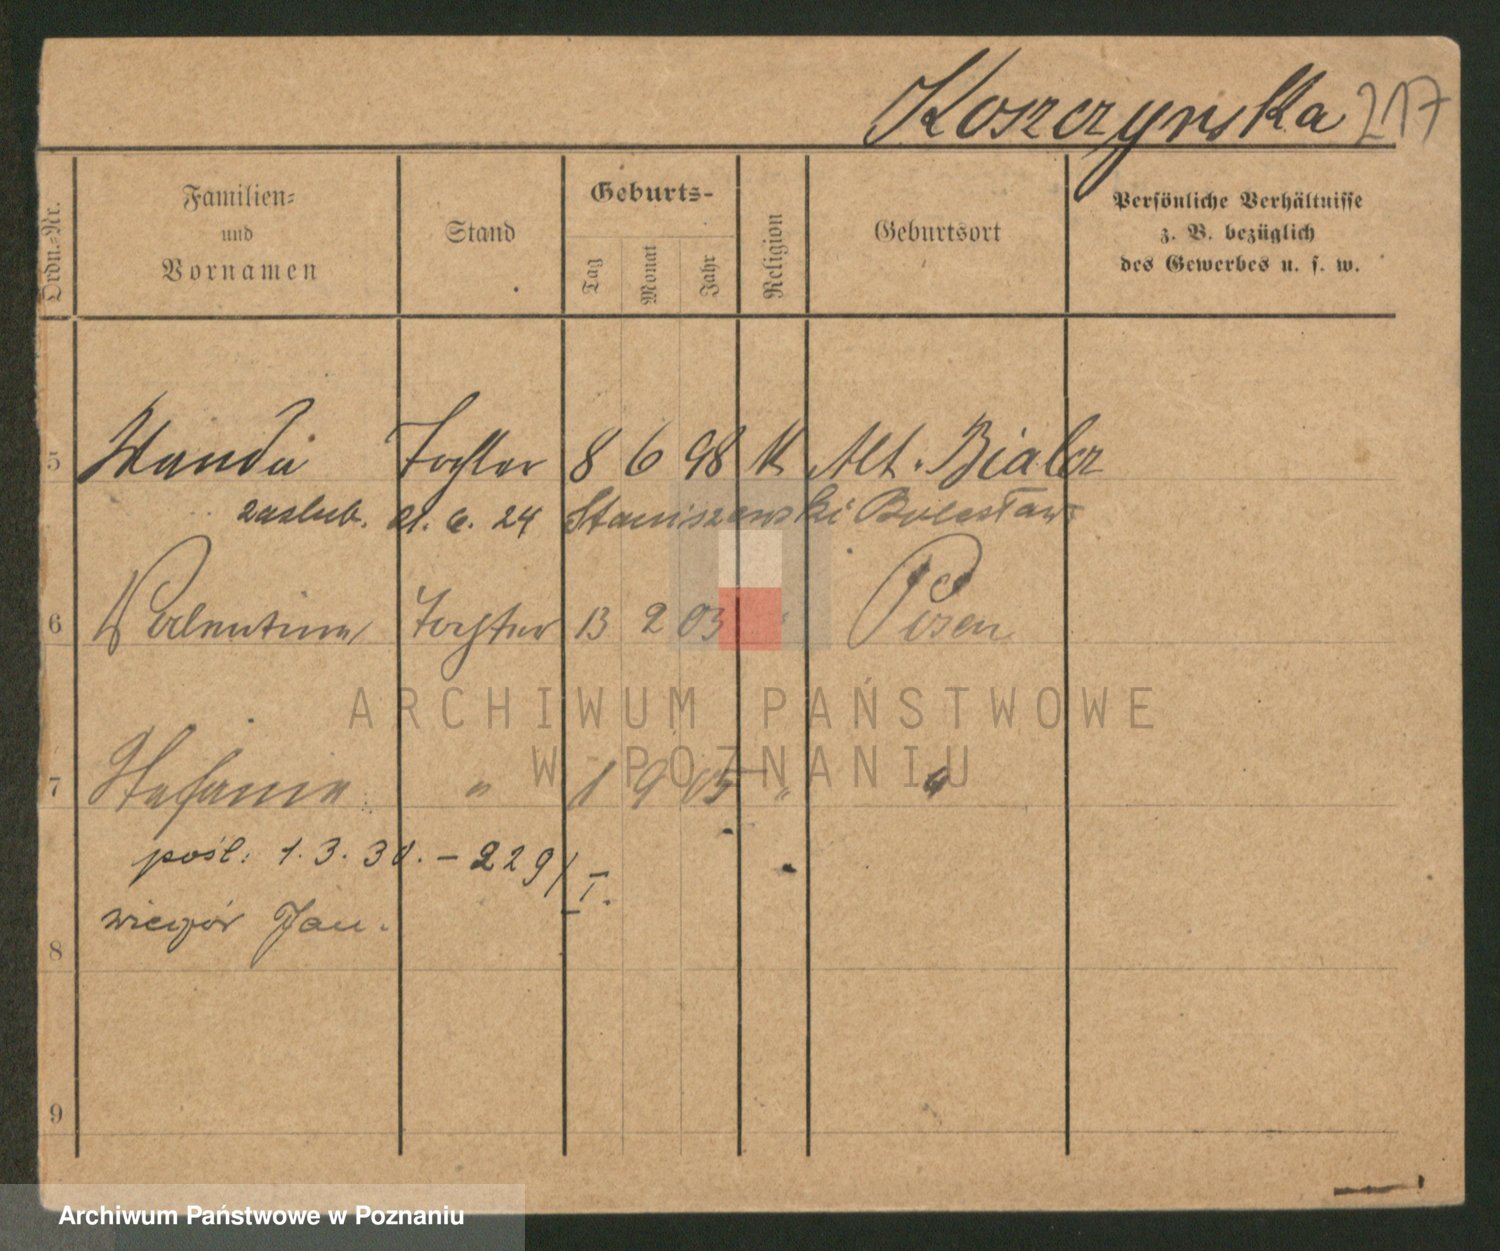 Koszczynska 217
Ordn.-Nr.
Familien-
und
Vornamen
Stand
Geburts-
Tag
Monat
Jahr
Religion
Geburtsort
Persönliche Verhältnisse
z. B. bezüglich
des Gewerbes u. s. w.
5 Wanda Tochter 8 6 98 K Alt-
zaslub. 21. 6. 24 Staniszewski Bolesław
6 Valentine Tochter 13 2 03 " Posen
7 Stefanie " 1 9 05 " "
pośl. 1. 3. 30. - 229/I.
Jan.
8
9
ARCHIWUM PAŃSTWOWE
W POZNANIU
Archiwum Państwowe w Poznaniu